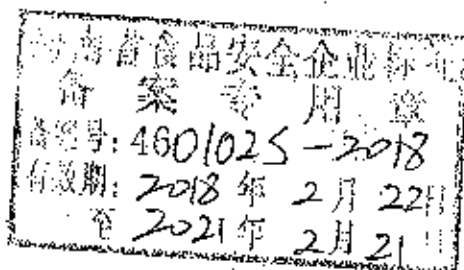 海南省食品安全企业标准
备案专用章
备案号:460102S-2018
有效期:2018年2月22日
至2021年2月21日